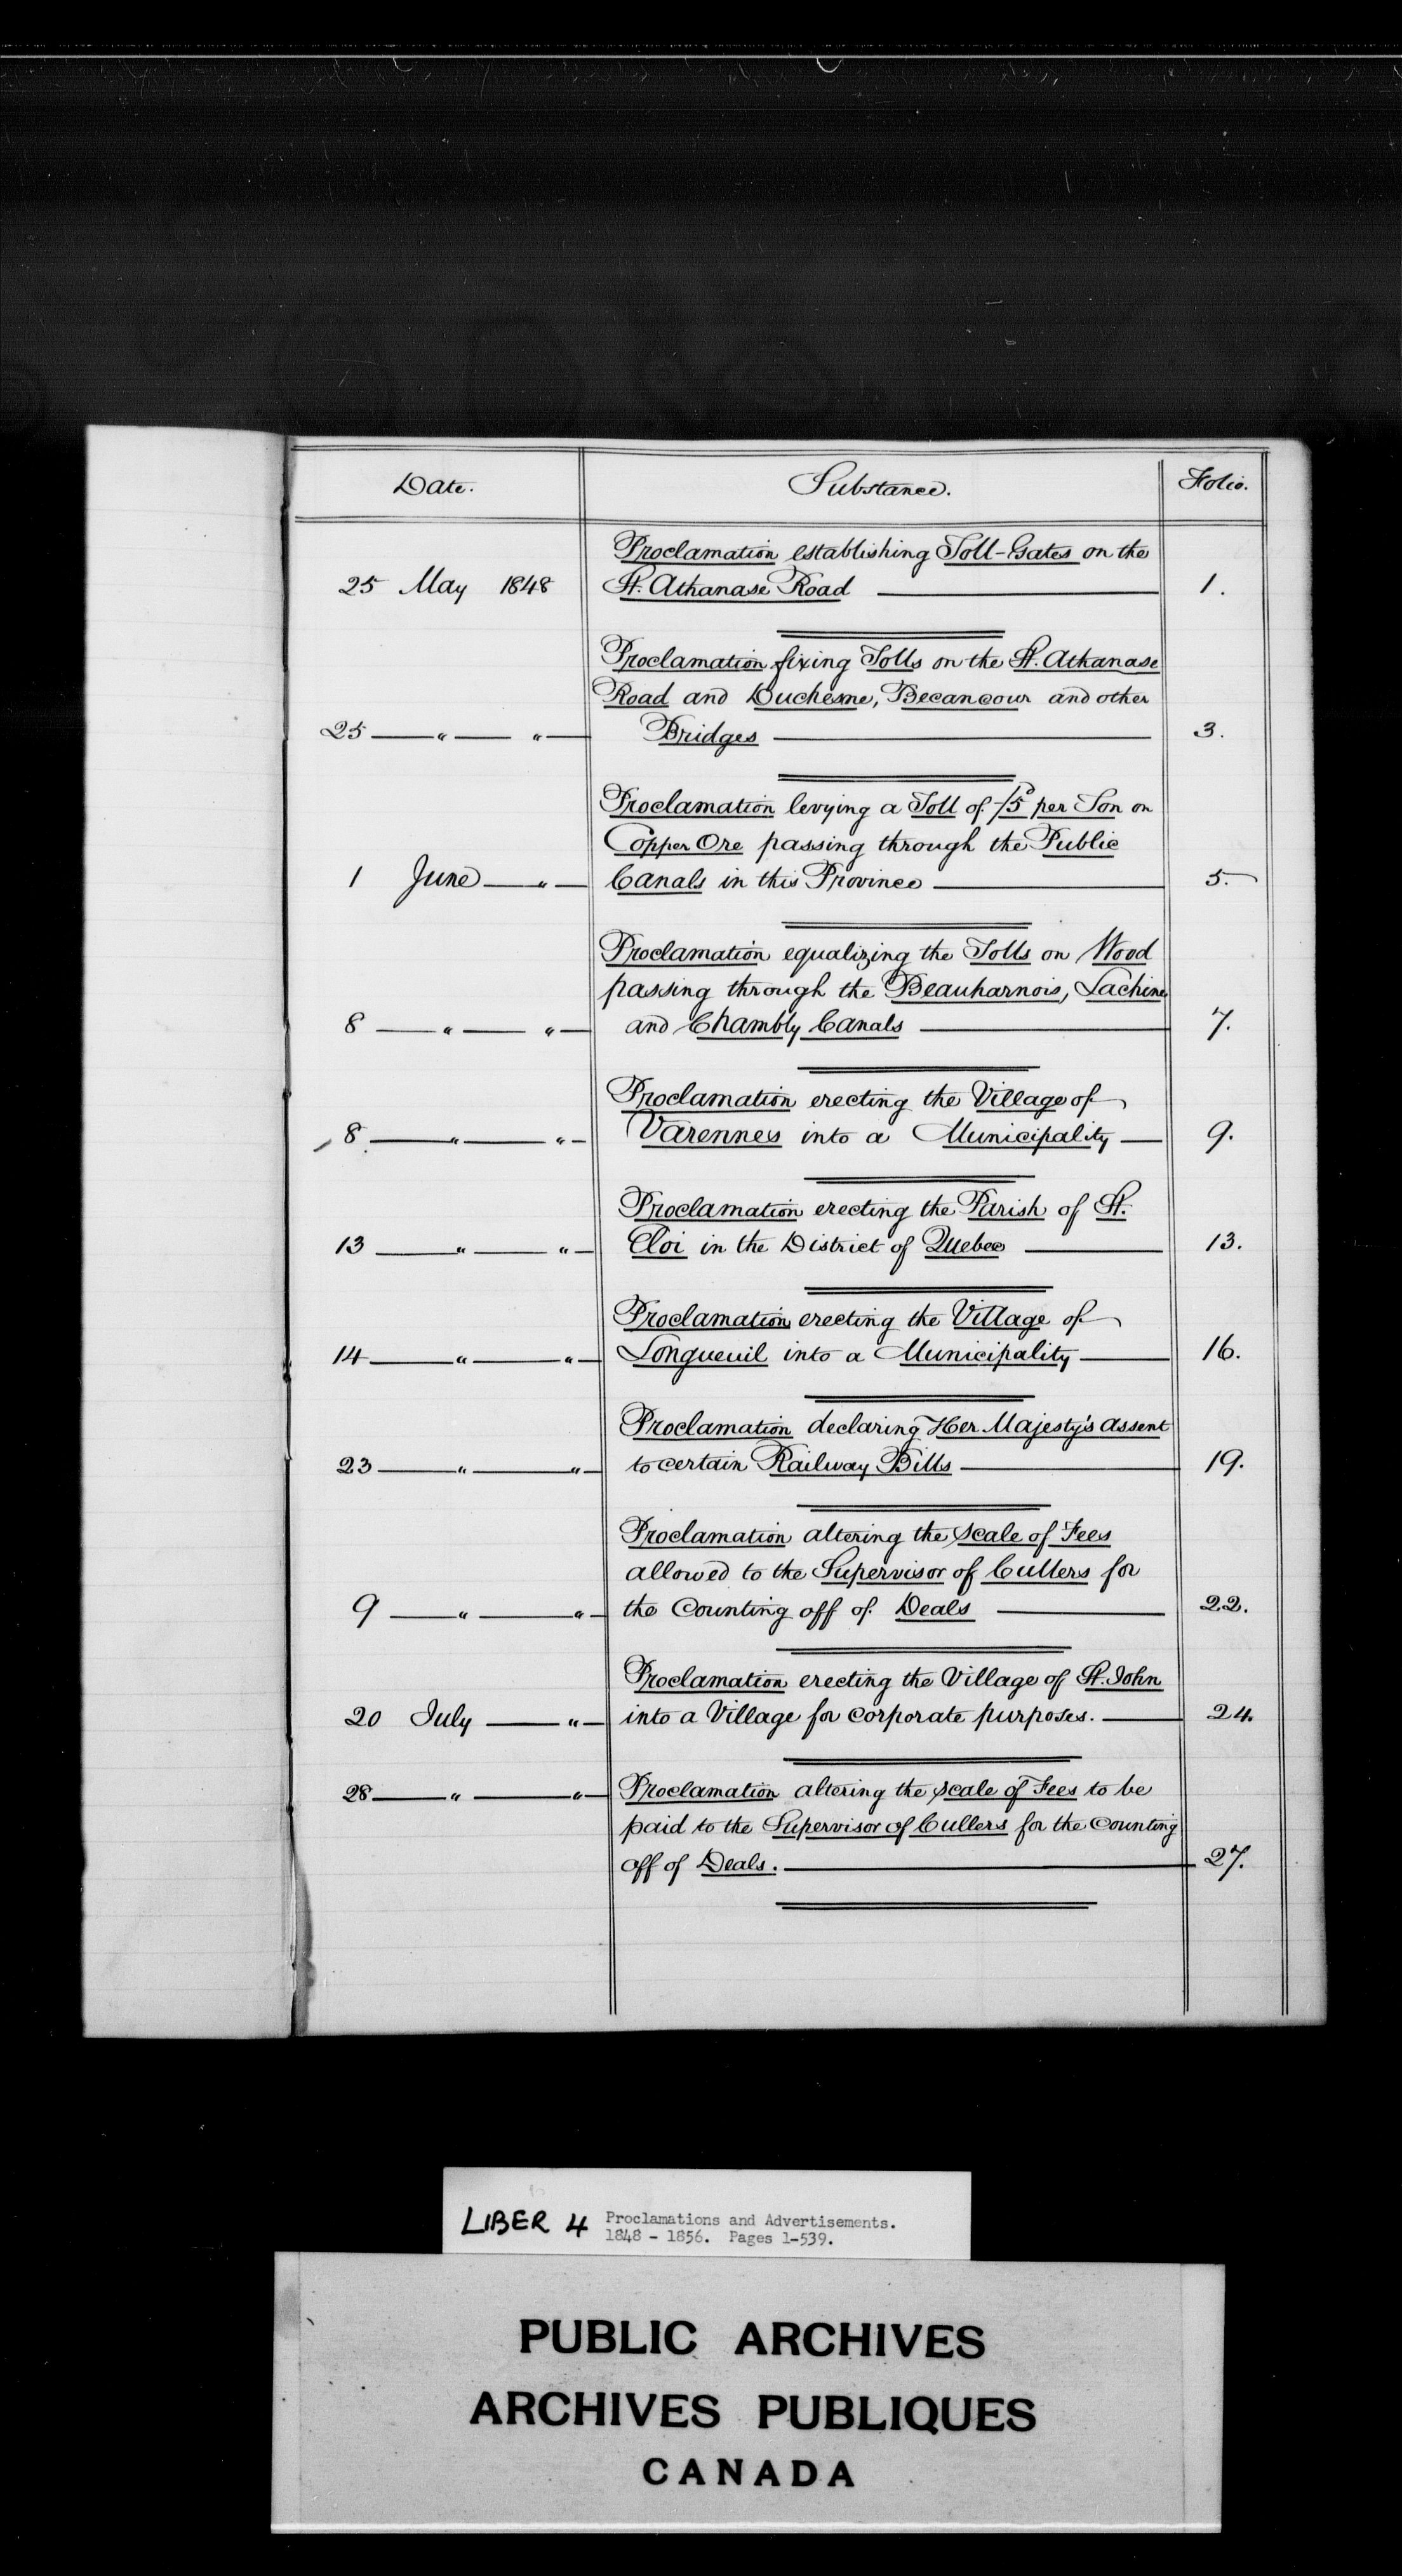 Date. Substance. Folio.
Proclamation establishing Toll-Gates on the
25 May 1848 St. Athanase Road 1.
Proclamation fixing Tolls on the St. Athanase
Road and Duchesne, Becancour and other
25 — " — " — Bridges 3.
Proclamation levying a Toll of -/5 per Ton on
Copper Ore passing through the Public
1 June — " — Canals in this Province 5.
Proclamation equalizing the Tolls on Wood
passing through the Beauharnois, Lachine
8 — " — " — and Chambly Canals 7.
Proclamation erecting the Village of
8 — " — " — Varennes into a Municipality 9.
Proclamation erecting the Parish of St.
13 — " — " — Eloi in the District of Quebec 13.
Proclamation erecting the Village of
14 — " — " — Longueuil into a Municipality 16.
Proclamation declaring Her Majesty's assent
23 — " — " — to certain Railway Bills 19.
Proclamation altering the scale of Fees
allowed to the Supervisor of Cullers for
9 — " — " — the Counting off of Deals 22.
Proclamation erecting the Village of St. John
20 July — " — into a Village for corporate purposes. 24.
28 — " — " — Proclamation altering the scale of Fees to be
paid to the Supervisor of Cullers for the Counting
off of Deals. 27.
LIBER 4 Proclamations and Advertisements.
1848 - 1856. Pages 1-539.
PUBLIC ARCHIVES
ARCHIVES PUBLIQUES
CANADA